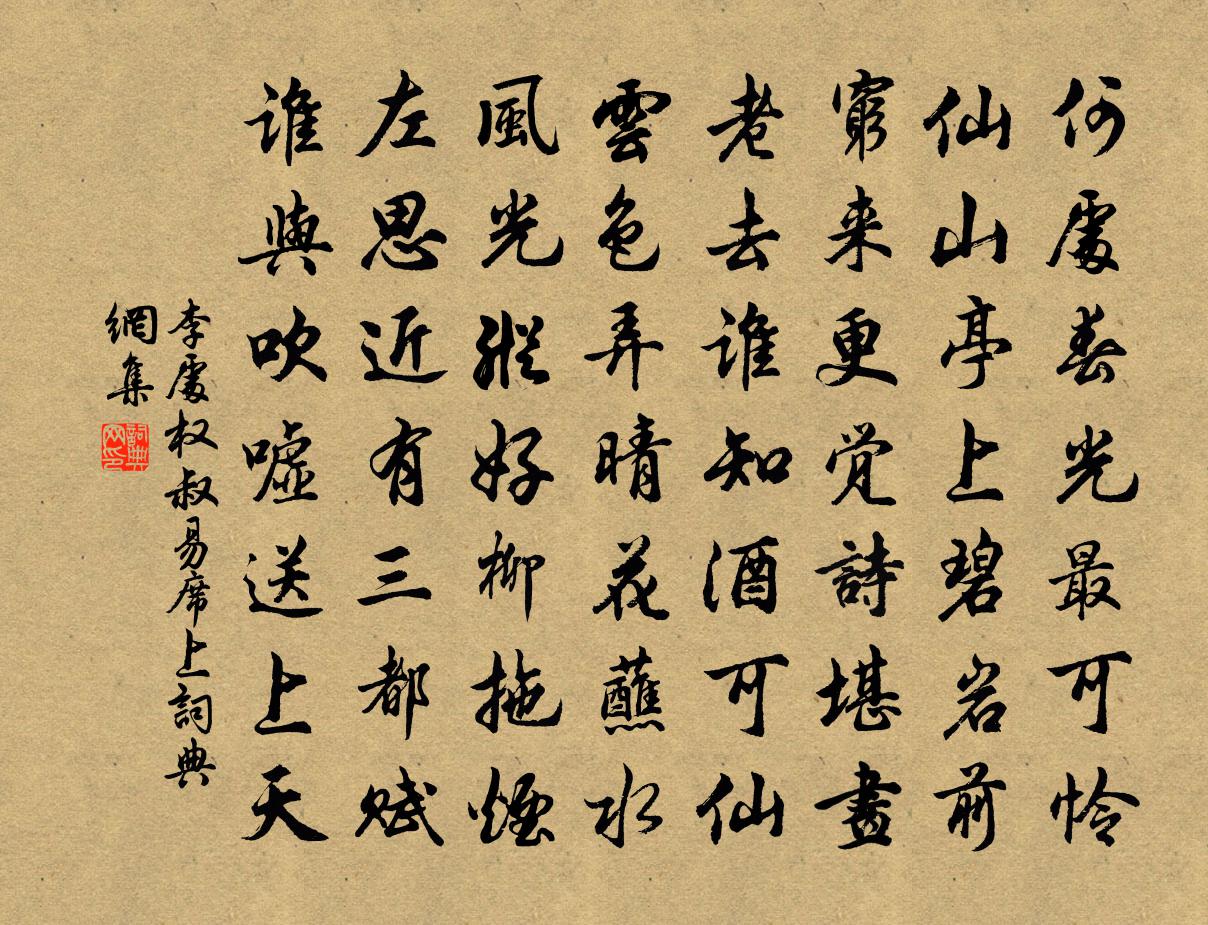 何處春光最可怜
仙山亭上碧岩前
窮来更覺詩堪畫
老去谁知酒可仙
雲色弄晴花蘸水
風光縱好柳拖煙
左思近有三都赋
谁與吹嘘送上天
李處权叔易席上詞典
網集
詞典网印